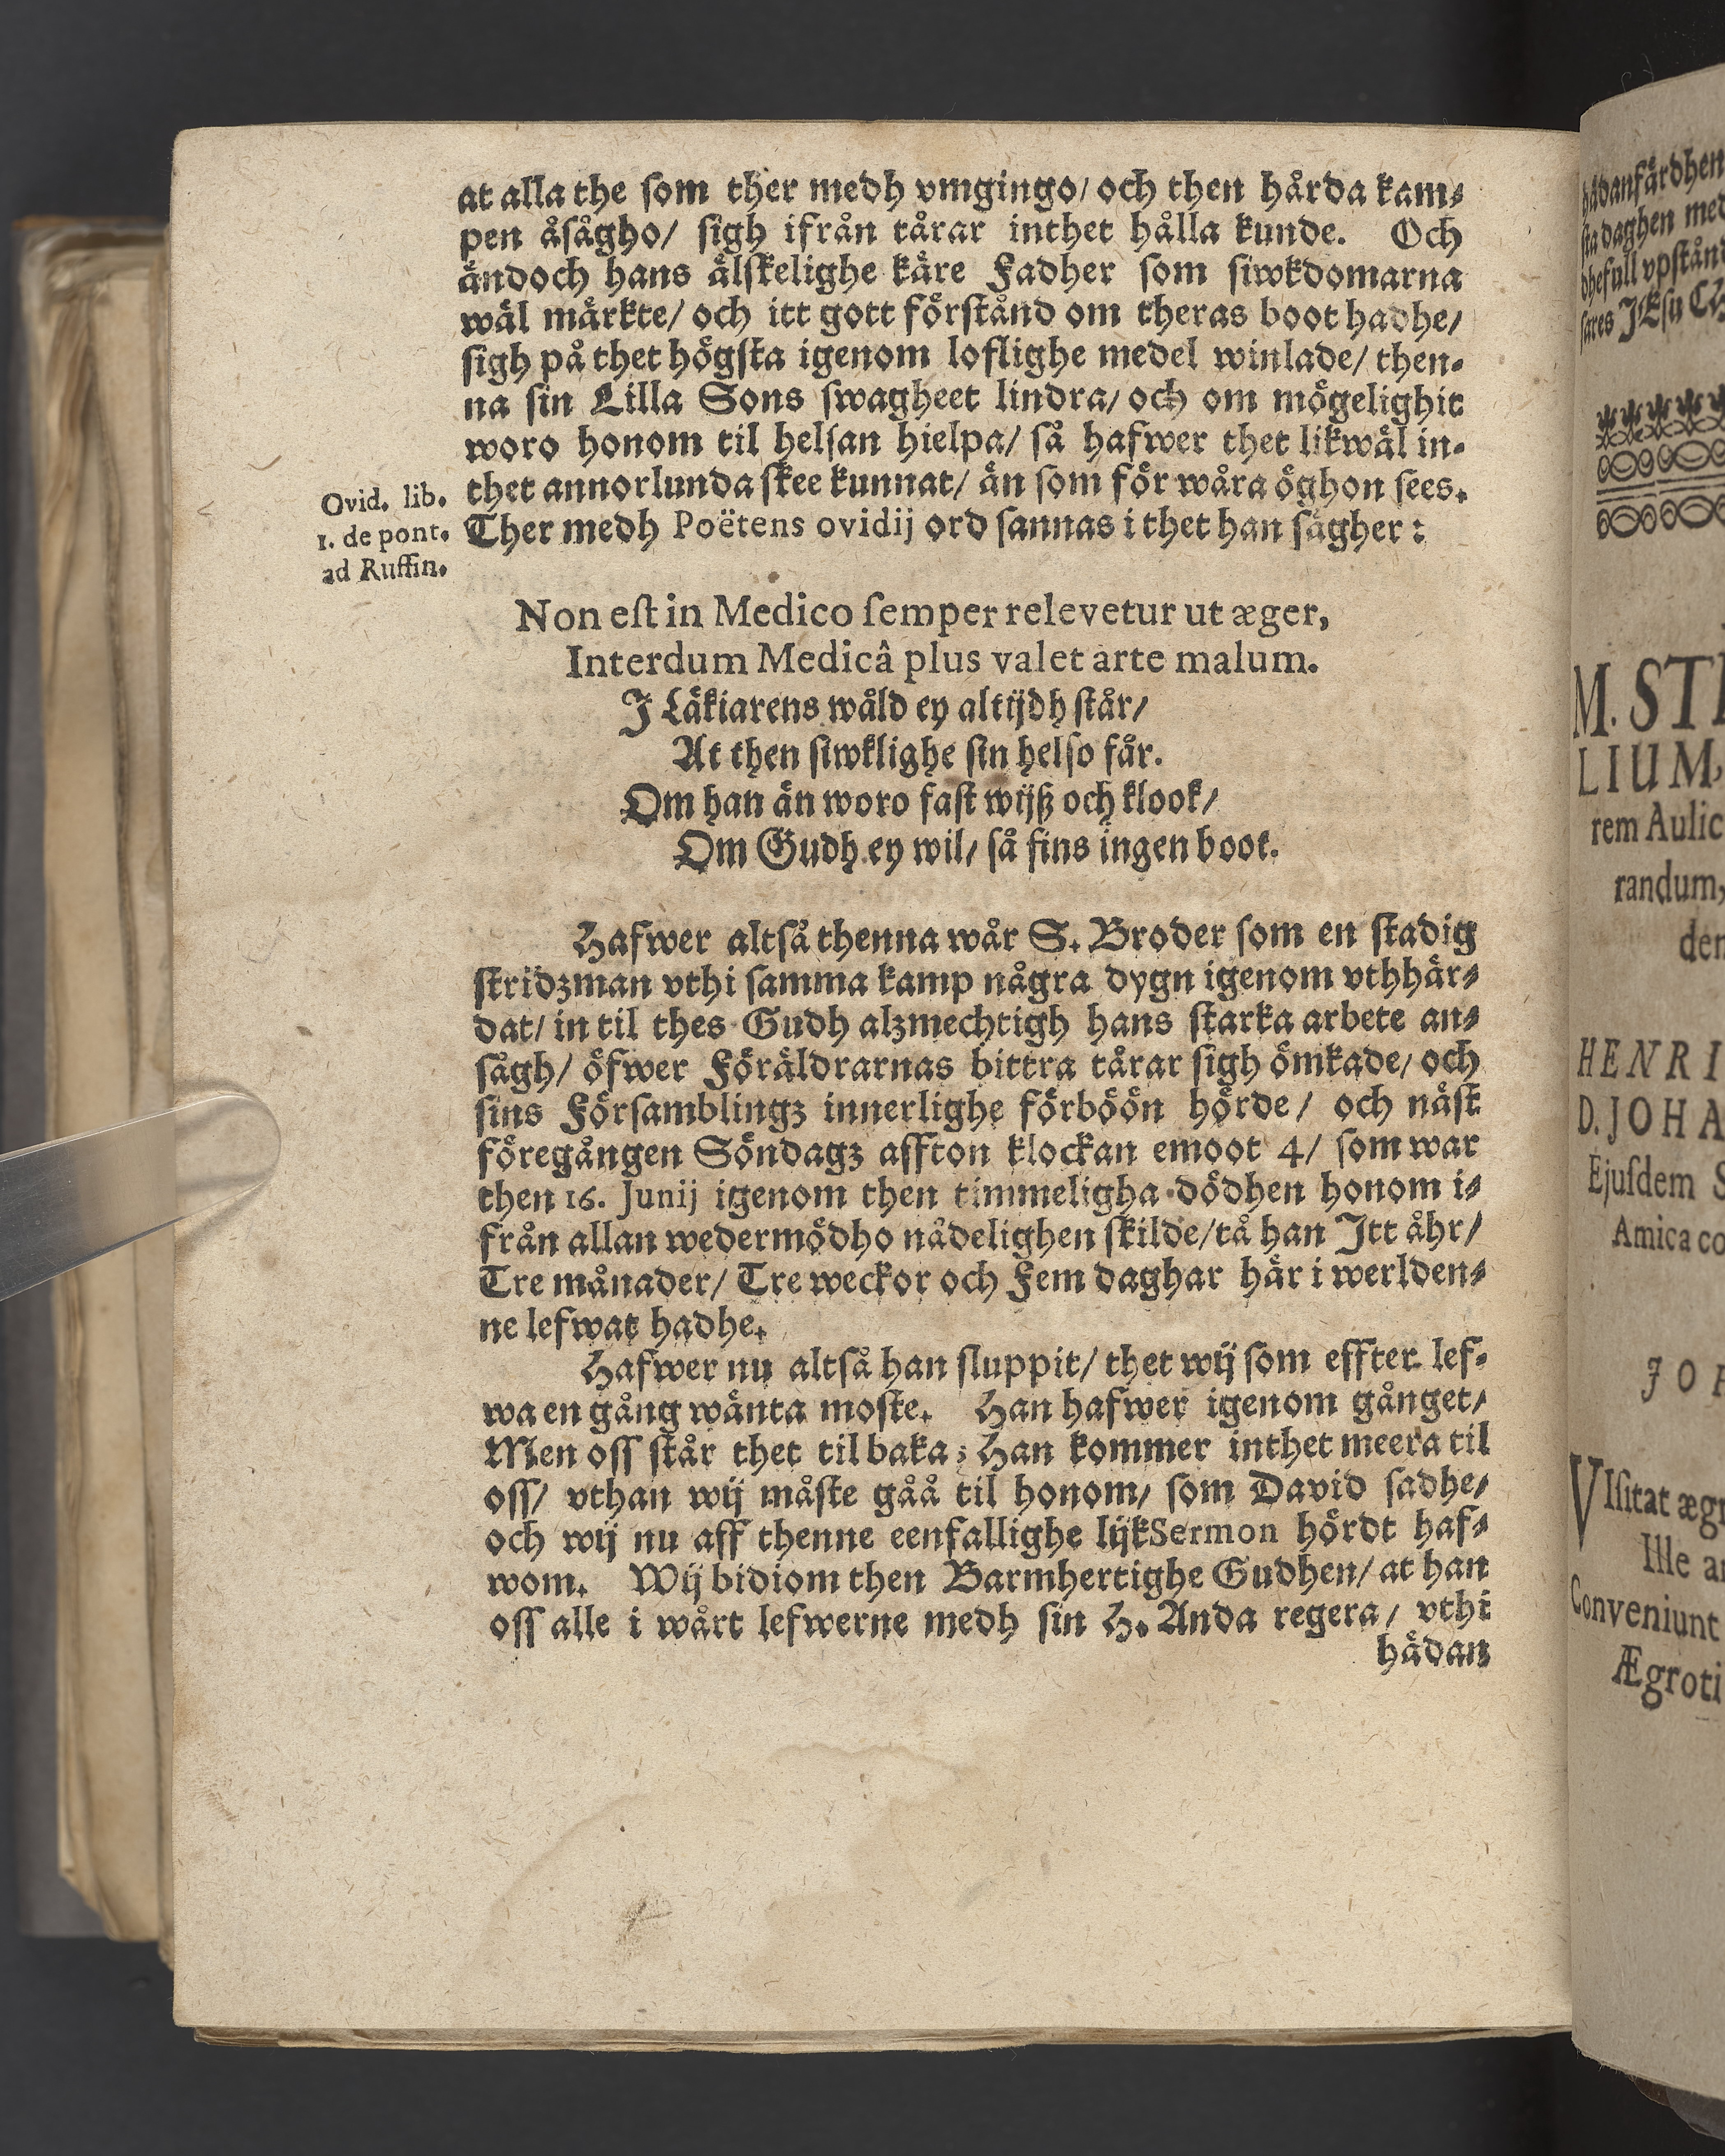 at alla the ſom ther medh vmgingo/ och then hårda kam⸗
pen åſågho/ ſigh ifrån tårar inthet hålla kunde. Och
ändoch hans älſkelighe käre Fadher ſom ſiwkdomarna
wäl märkte/ och itt gott förſtånd om theras boot hadhe/
ſigh på thet högſta igenom loflighe medel winlade/ then⸗
na ſin Lilla Sons ſwagheet lindra/ och om mögelighit
woro honom til helſan hielpa/ så hafwer thet likwäl in⸗
Ovid. lib.
1. de pont.
ad Ruffin.
thet annorlunda ſkee kunnat/ än ſom för wåra öghon ſees.
Ther medh Poëtens ovidij ord ſannas i thet han ſägher:
Non eſt in Medico ſemper relevetur ut æger,
Interdum Medicâ plus valet arte malum.
J Läkiarens wåld ey altijdh ſtår/
At then ſiwklighe ſin helſo får.
Om han än woro faſt wijß och klook/
Om Gudh ey wil/ ſå fins ingen boot.
Hafwer altſå thenna wår S. Broder ſom en ſtadig
ſtridzman vthi ſamma kamp några dygn igenom vthhär⸗
dat/ in til thes Gudh alzmechtigh hans ſtarka arbete an⸗
ſågh/ öfwer Föräldrarnas bittra tårar ſigh ömkade/ och
ſins Förſamblingz innerlighe förböön hörde/ och näſt
föregången Söndagz affton klockan emoot 4/ ſom war
then 16. Junij igenom then timmeligha dödhen honom i⸗
från allan wedermödho nådelighen ſkilde/ tå han Itt åhr/
Tre månader/ Tre weckor och Fem daghar här i werlden⸗
ne lefwat hadhe.
Hafwer nu altſå han ſluppit/ thet wij ſom effter lef⸗
wa en gång wänta moſte. Han hafwer igenom gånget/
Men oſſ ſtår thet tilbaka; Han kommer inthet meera til
oſſ/ vthan wij måſte gåå til honom/ ſom David ſadhe/
och wij nu aff thenne eenfallighe lijkSermon hördt haf⸗
wom. Wij bidiom then Barmhertighe Gudhen/ at han
oſſ alle i wårt lefwerne medh ſin H. Anda regera/ vthi
hädan
hädanfärdhen
ſta daghen med
dhefull vpſtånd
ſares JEſu
M. ST
LIUM,
rem Aulic
randum,
den
HENRI
D. JOHA
Ejuſdem S
Amica co
JO
VIſitat ægr
Ille a
Conveniunt
Ægroti